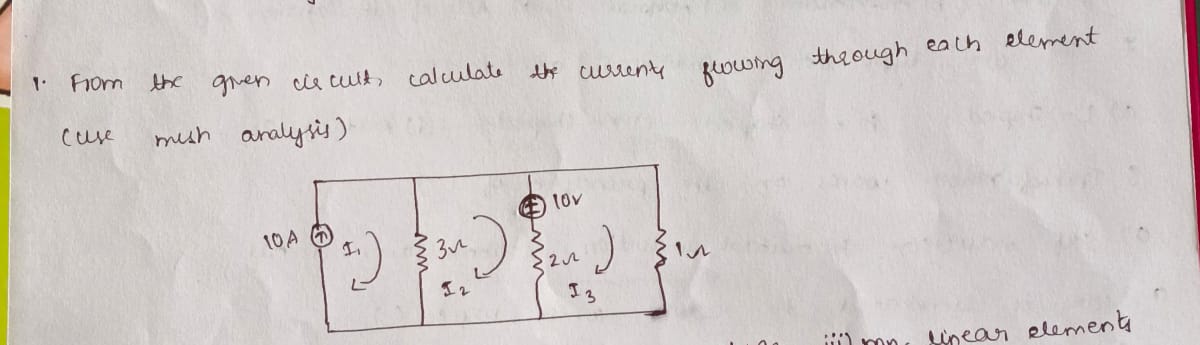 1. From the given circuit, calculate the current flowing through each element
(use mesh analysis)
10V
10A I₁ 3Ω 2Ω 1Ω
I₂ I₃
iii) linear elements